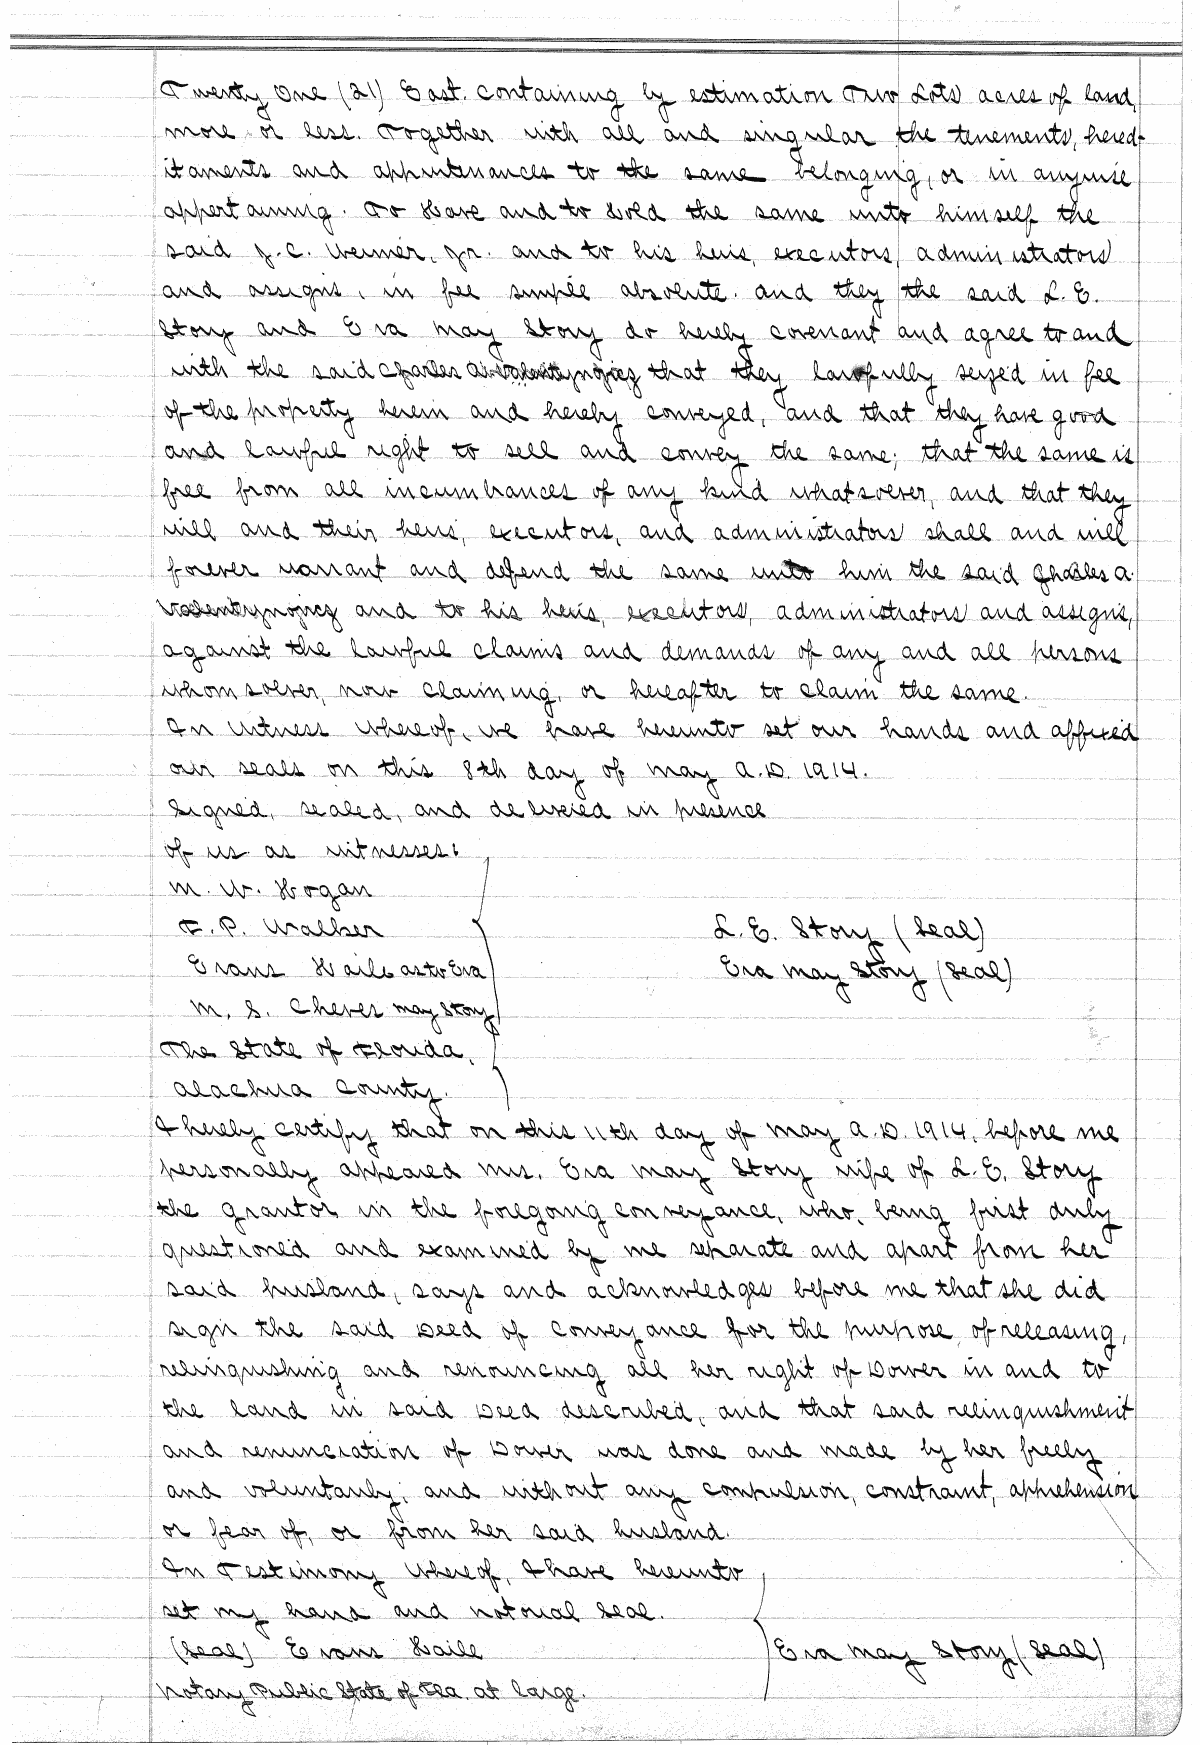 Twenty One (21) East. containing by estimation Two Lots acres of land,
more or less. Together with all and singular the tenements, hered-
itaments and appurtenances to the same belonging, or in anywise
appertaining. To Have and to Hold the same unto himself the
said J. C. Weimer, Jr. and to his heirs, executors, administrators
and assigns, in fee simple absolute. and they the said L. E.
Story and Eva May Story do hereby covenant and agree to and
with the said Charles A. that they lawfully seized in fee
of the property herein and hereby conveyed, and that they have good
and lawful right to sell and convey the same; that the same is
free from all incumbrances of any kind whatsoever, and that they
will and their heirs, executors, and administrators shall and will
forever warrant and defend the same unto him the said Charles A.
and to his heirs, executors, administrators and assigns,
against the lawful claims and demands of any and all persons
whomsoever, now claiming, or hereafter to claim the same.
In Witness Whereof, we have hereunto set our hands and affixed
our seals on this 8th day of May A.D. 1914.
Signed, sealed, and delivered in presence
of us as witnesses:
M. W. Hogan
F. P. Walker L. E. Story (Seal)
Evans Haile as to Eva Eva May Story (Seal)
M. S. Cheves May Story
The State of Florida,
Alachua County.
I hereby certify that on this 11th day of May A.D. 1914, before me
personally appeared Mrs. Eva May Story wife of L. E. Story
the grantor in the foregoing conveyance, who, being first duly
questioned and examined by me separate and apart from her
said husband, says and acknowledges before me that she did
sign the said Deed of Conveyance for the purpose of releasing,
relinquishing and renouncing all her right of Dower in and to
the land in said Deed described, and that said relinquishment
and renunciation of Dower was done and made by her freely
and voluntarily, and without any compulsion, constraint, apprehension
or fear of, or from her said husband.
In Testimony Whereof, I have hereunto
set my hand and notorial seal.
(Seal) Evans Haile Eva May Story (Seal)
Notary Public State of Fla. at large.